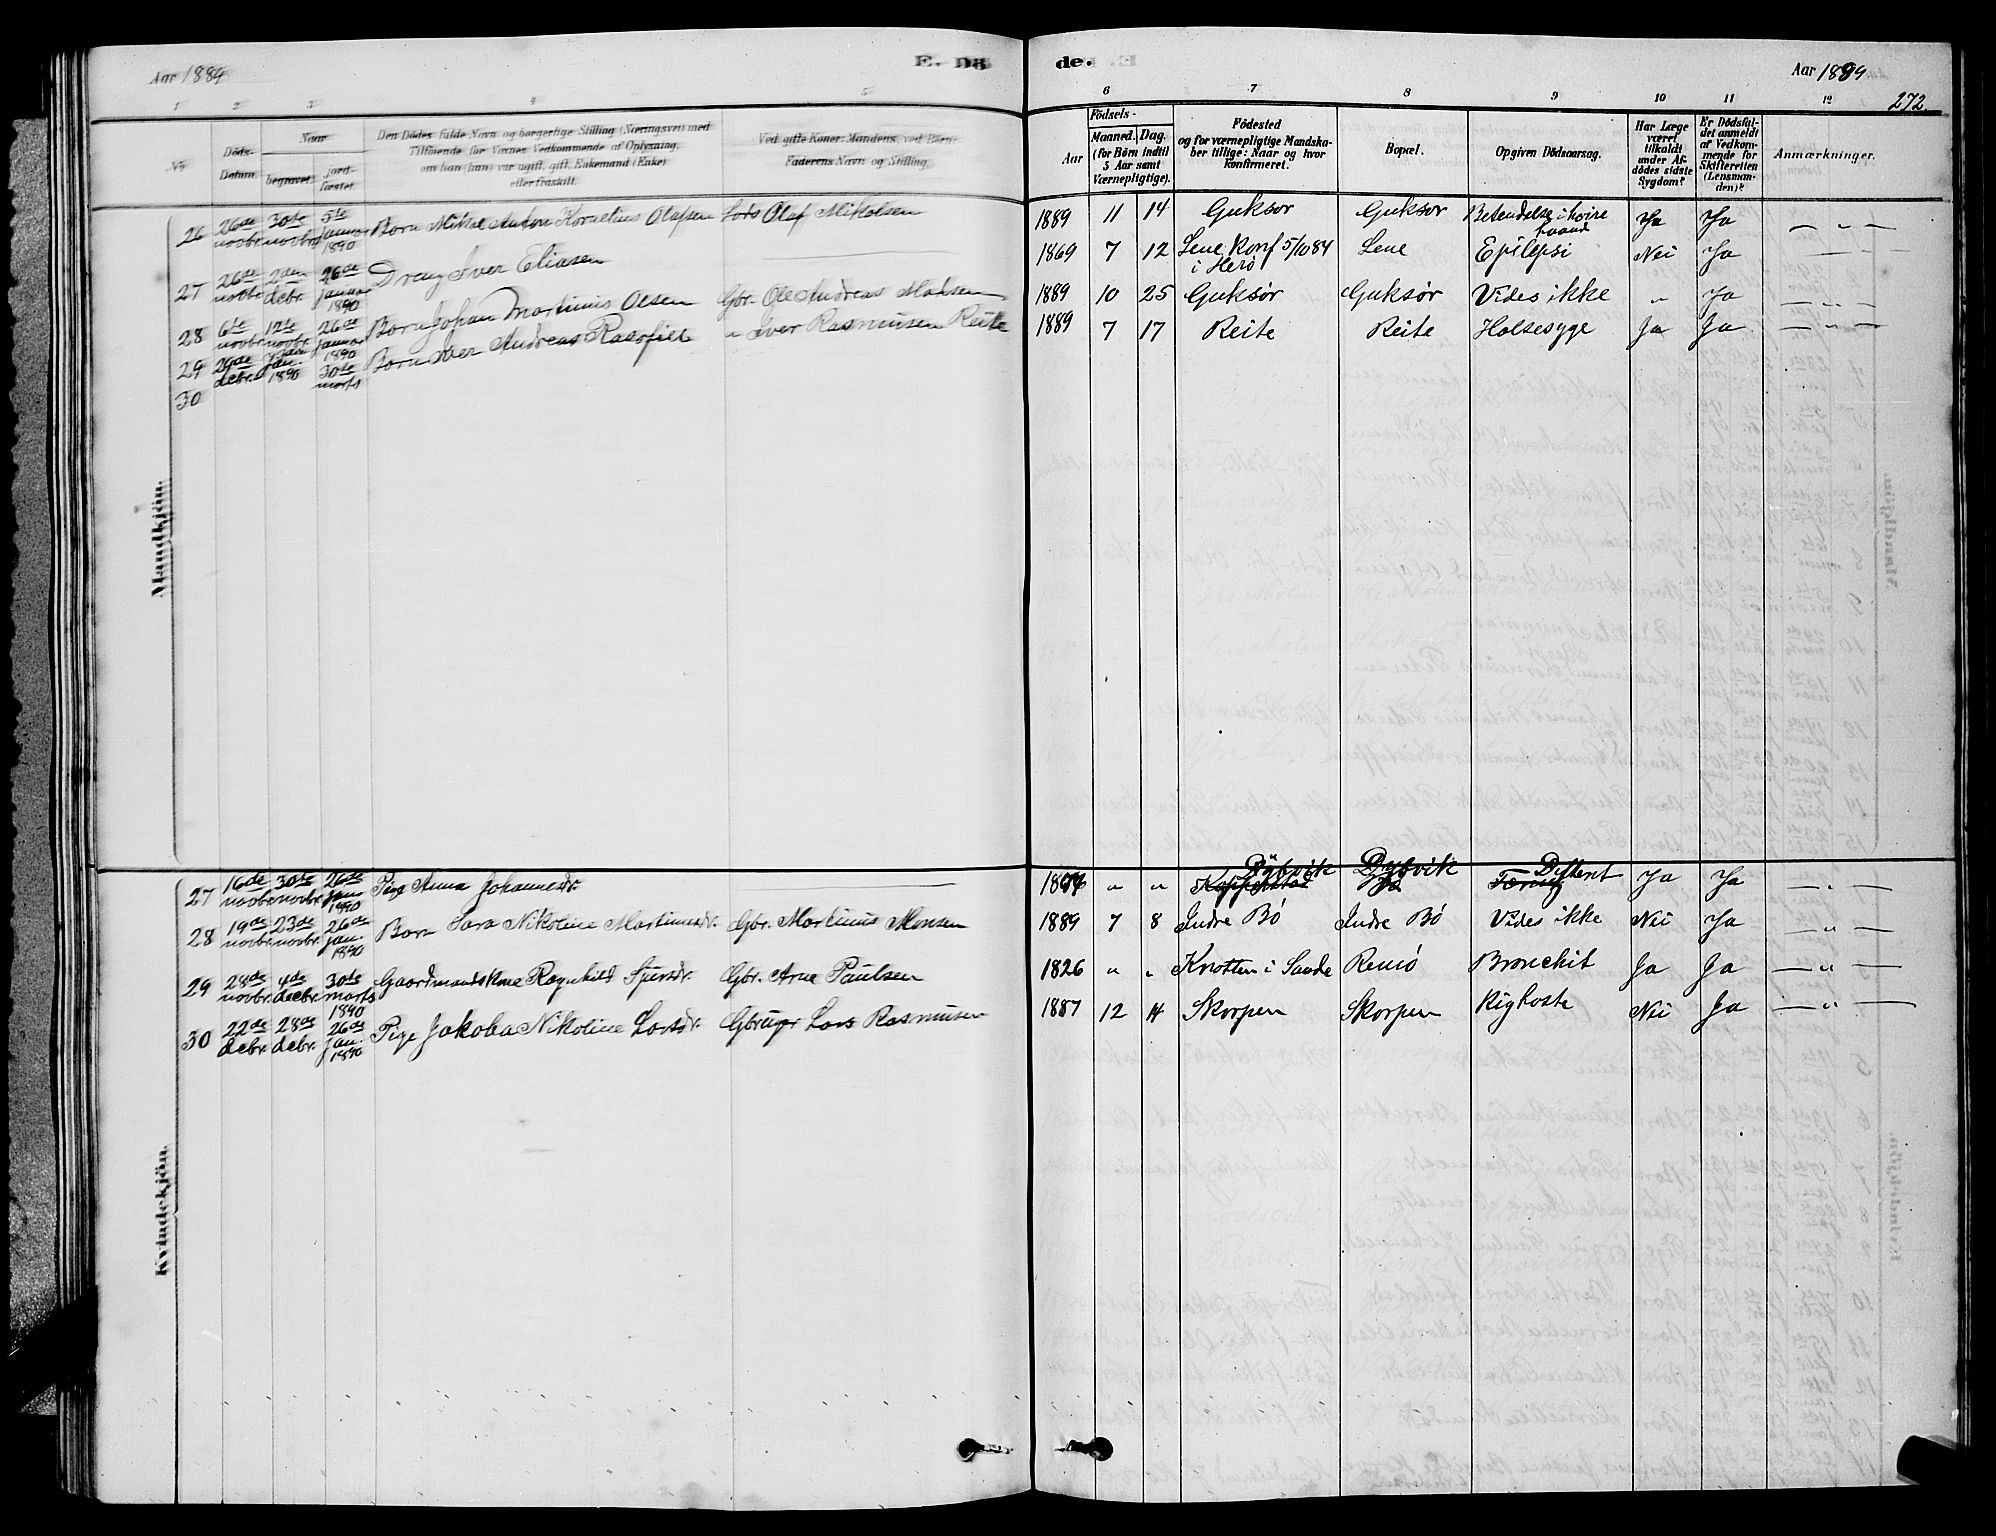 Aar 1884 E. Dö de. Aar 1889
272
1 2 3 4 5 6 7 8 9 10 11 12
No. Döds-Datum. Naar begravet. jordfæstet.
Den Dödes fulde Navn og borgerlige Stilling (Næringsvei) med
Tilföiende for Voxnes Vedkommende af Oplysning,
om han (hun) var ugift, gift, Enkemand (Enke)
eller fraskilt.
Ved gifte Koner: Mandens, ved Börn:
Faderens Navn og Stilling.
Födsels-
Aar Maaned. Dag.
(for Börn indtil
5 Aar samt
Værnepligtige).
Födested
og for værnepligtige Mandskaber tillige: Naar og hvor
konfirmeret.
Bopæl.
Opgiven Dödsaarsag.
Har Læge
været
tilkaldt
under Afdödes sidste
Sygdom?
Er Dödsfaldet anmeldt
af Vedkommende for
Skifteretten
(Lensmanden)?
Anmærkninger.
Mandkjön.
26 26de novbr. 30te novbr. 5te januar 1890 Barn Mikal Anton Kornelius Olafsen Lods Olaf Mikalsen 1889 11 14 Guksør Guksør Betendelse i høire haand Ja Ja — „ —
27 26de novbr. 2den debr. 26de januar 1890 Dreng Iver Eliasen 1869 7 12 Lene Konf 5/10 84 i Herø Lene Epilepsi Nei Ja —
28 6te novbr. 12te novbr. 26de januar 1890 Barn Johan Martinus Olsen Gbr. Ole Andreas Madsen 1889 10 25 Guksør Guksør Vides ikke „ Ja — „ —
29 29de debr. jan. 1890 30te marts Barn Iver Andreas „ Iver Rasmusen Reite 1889 7 17 Reite Reite Halsesyge Ja Ja — „ —
30
Kvindekjön.
27 16de novbr. 30te novbr. 26de jan. 1890 Pige Anna Johannesdr. — „ „ Kopperstad Dybvik Dybvik Dyfterit Ja Ja — „ —
28 19de novbr. 23de novbr. 26de jan. 1890 Barn Sara Nikoline Martinusdr. Gbr. Martinus Monsen 1889 7 8 Indre Bø Indre Bø Vides ikke Nei Ja — „ —
29 28de novbr. 4de decbr. 30te marts 1890 Gaardmandskone Ragnhild Sjursdr. Gbr. Arne Paulsen 1826 „ „ Knotten i Sande Remø Bronchit Ja Ja — „ —
30 22de debr. 28de debr. 26de jan. 1890 Pige Jakoba Nikoline Larsdr. Gbruger Lars Rasmusen 1887 12 14 Skorpen Skorpen Kighoste Nei Ja — „ —